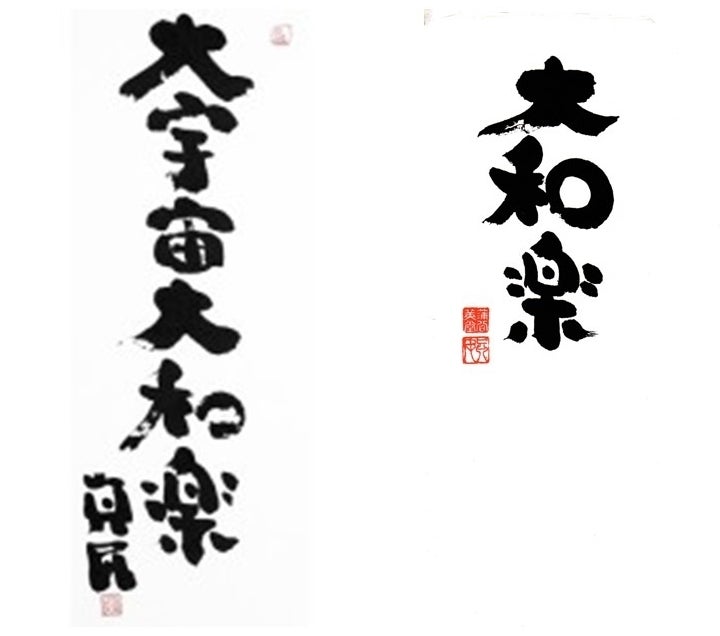 大宇宙大和楽
真民
大和楽